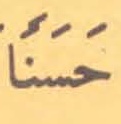 حَسَنًا